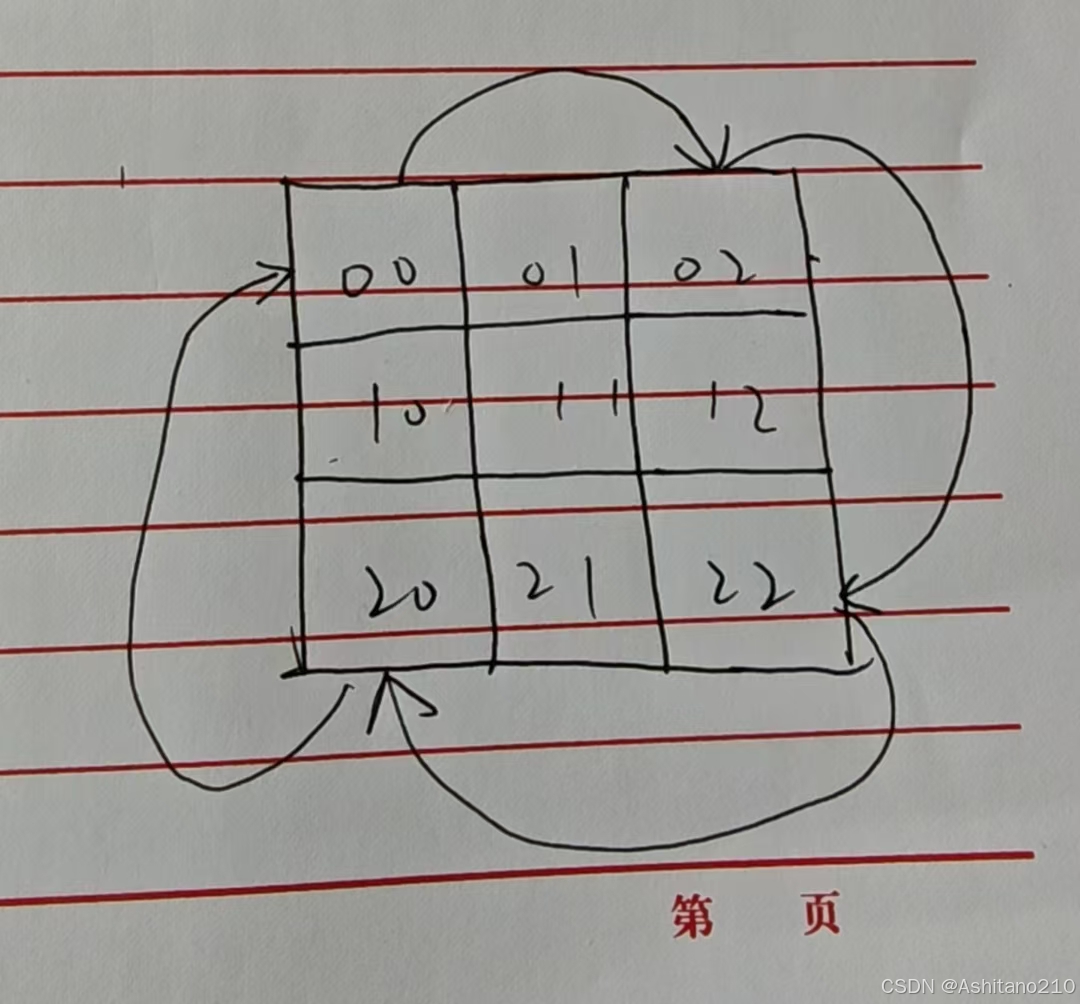 00 01 02
10 11 12
20 21 22
第 页
CSDN @Ashitano210